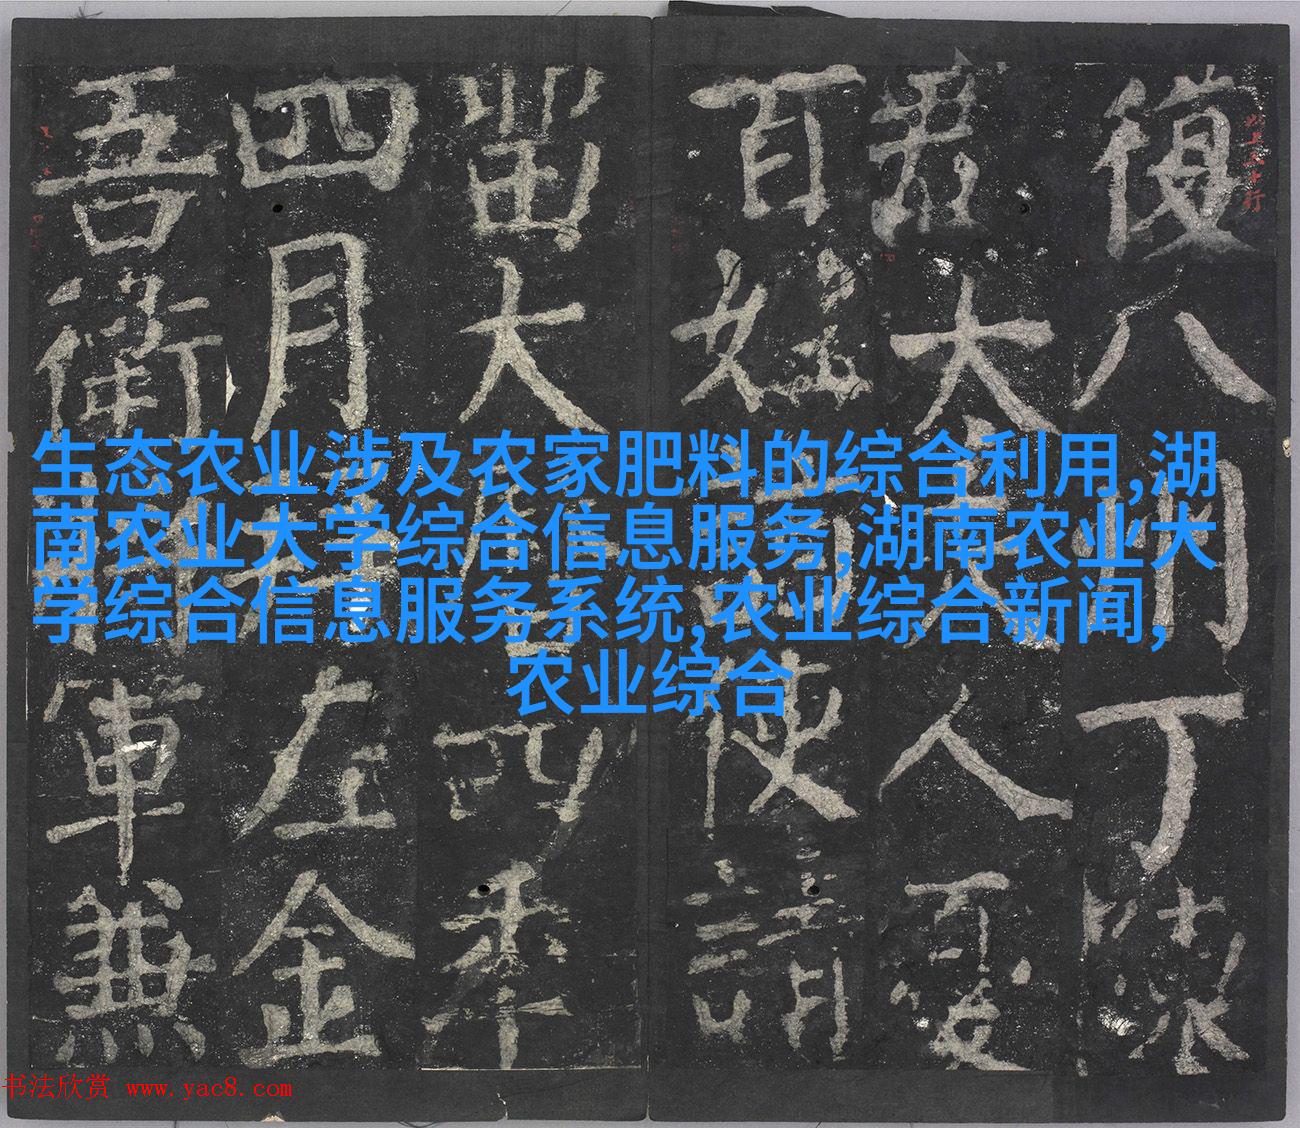 生态农业涉及农家肥料的综合利用,湖
南农业大学综合信息服务,湖南农业大
学综合信息服务系统,农业综合新闻,
农业综合
復八丁陳
君人憂
百姓使請
留大曆四年
四月左金
吾衛將軍兼
书法欣赏 www.yac8.com